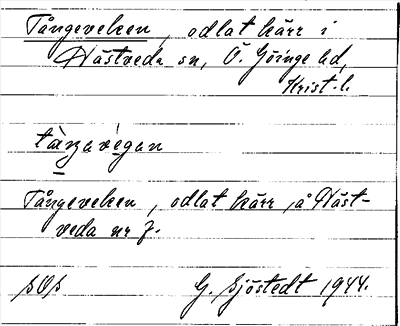 Tångeveken, odlat kärr i
Hästveda sn, Ö. Göinge hd,
Krist. l.
tàŋavègan
Tångeveken, odlat kärr, å Häst-
veda nr 7.
G. Sjöstedt 1944.